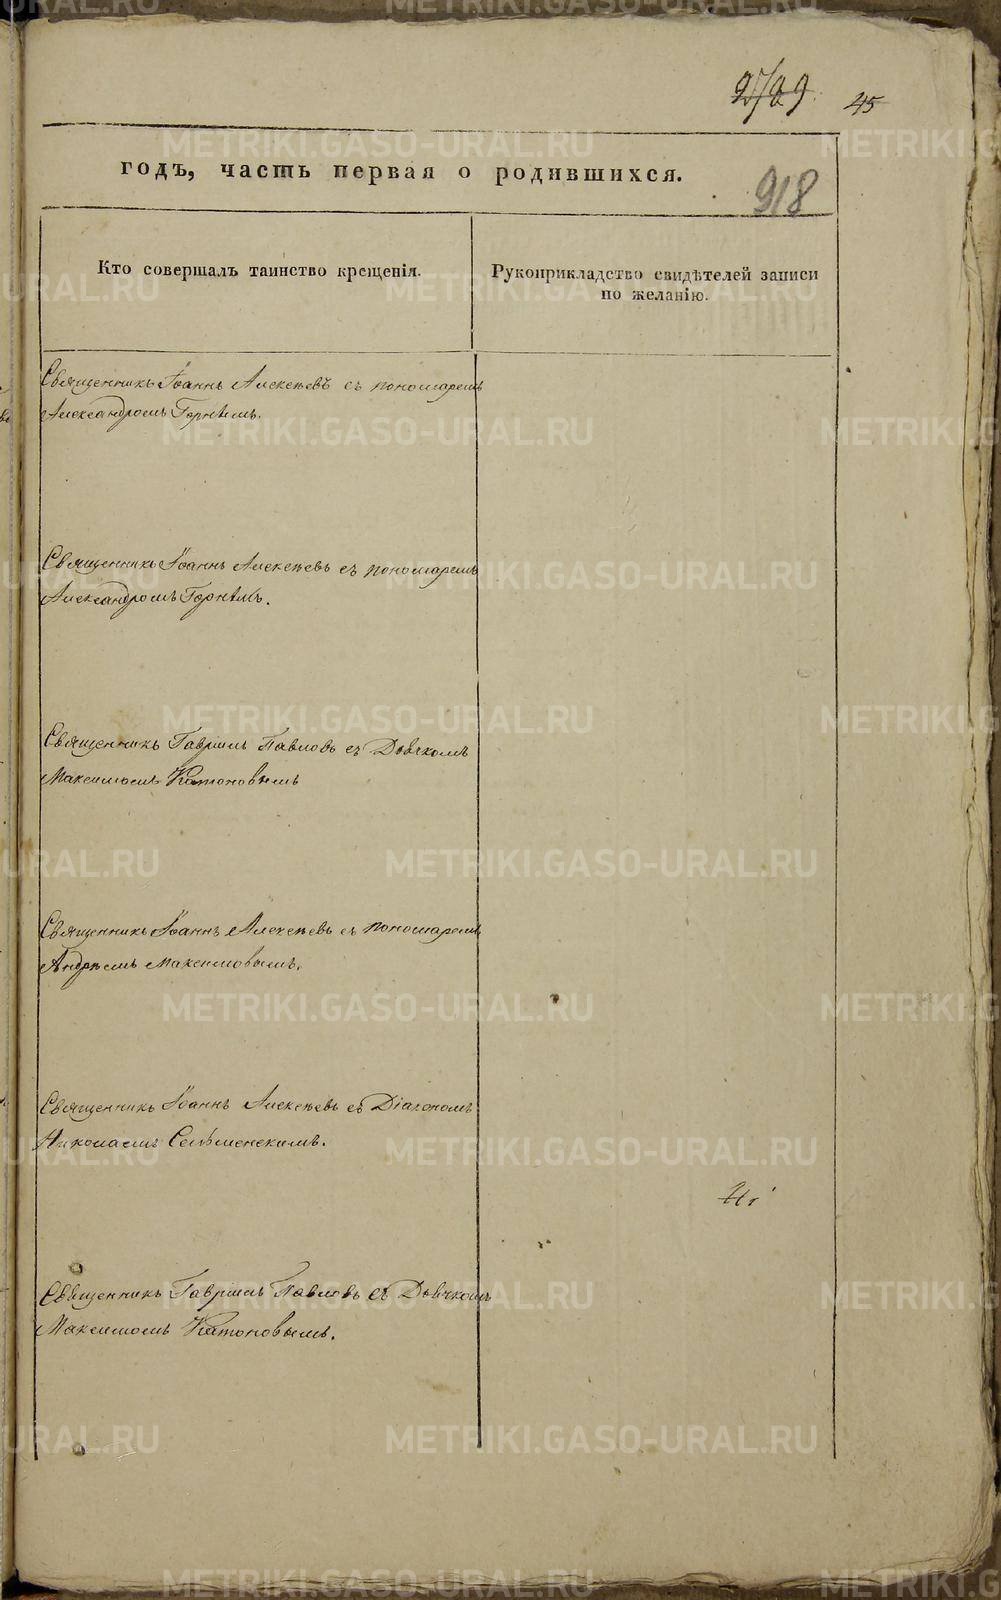 45
годъ, часть первая о родившихся.
918
Кто совершалъ таинство крещенія.
Рукоприкладство свидѣтелей записи
по желанію.
Священникъ Іоаннъ Алексѣевъ съ пономаремъ
Александромъ
Священникъ Іоаннъ Алексѣевъ съ пономаремъ
Александромъ
Священникъ Гавріилъ Павловъ съ Дьячкомъ
Максимомъ Катоновымъ
Священникъ Іоаннъ Алексѣевъ съ пономаремъ
Андрѣемъ Максимовымъ.
Священникъ Іоаннъ Алексѣевъ съ Діакономъ
Николаемъ
Священникъ Гавріилъ Павловъ съ Дьячкомъ
Максимомъ Катоновымъ.
METRIKI.GASO-URAL.RU